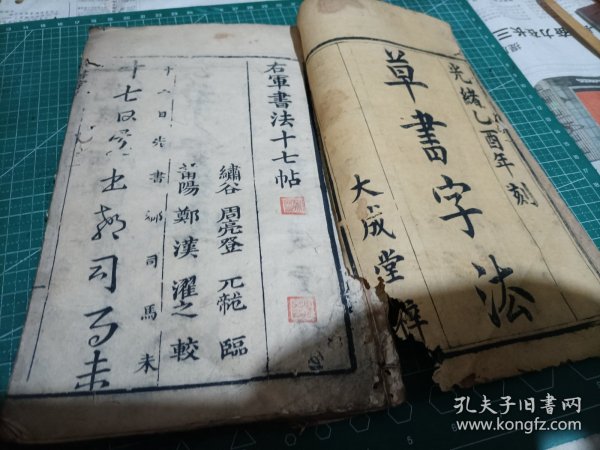 光緒乙酉年刻
草書字法
大成堂梓
右軍書法十七帖
繡谷 周亮登 元龍 臨
莆陽 鄭漢 濯之 較
十七日先書郗司馬未
十七日先書郗司馬未
孔夫子旧书网
www.kongfz.com